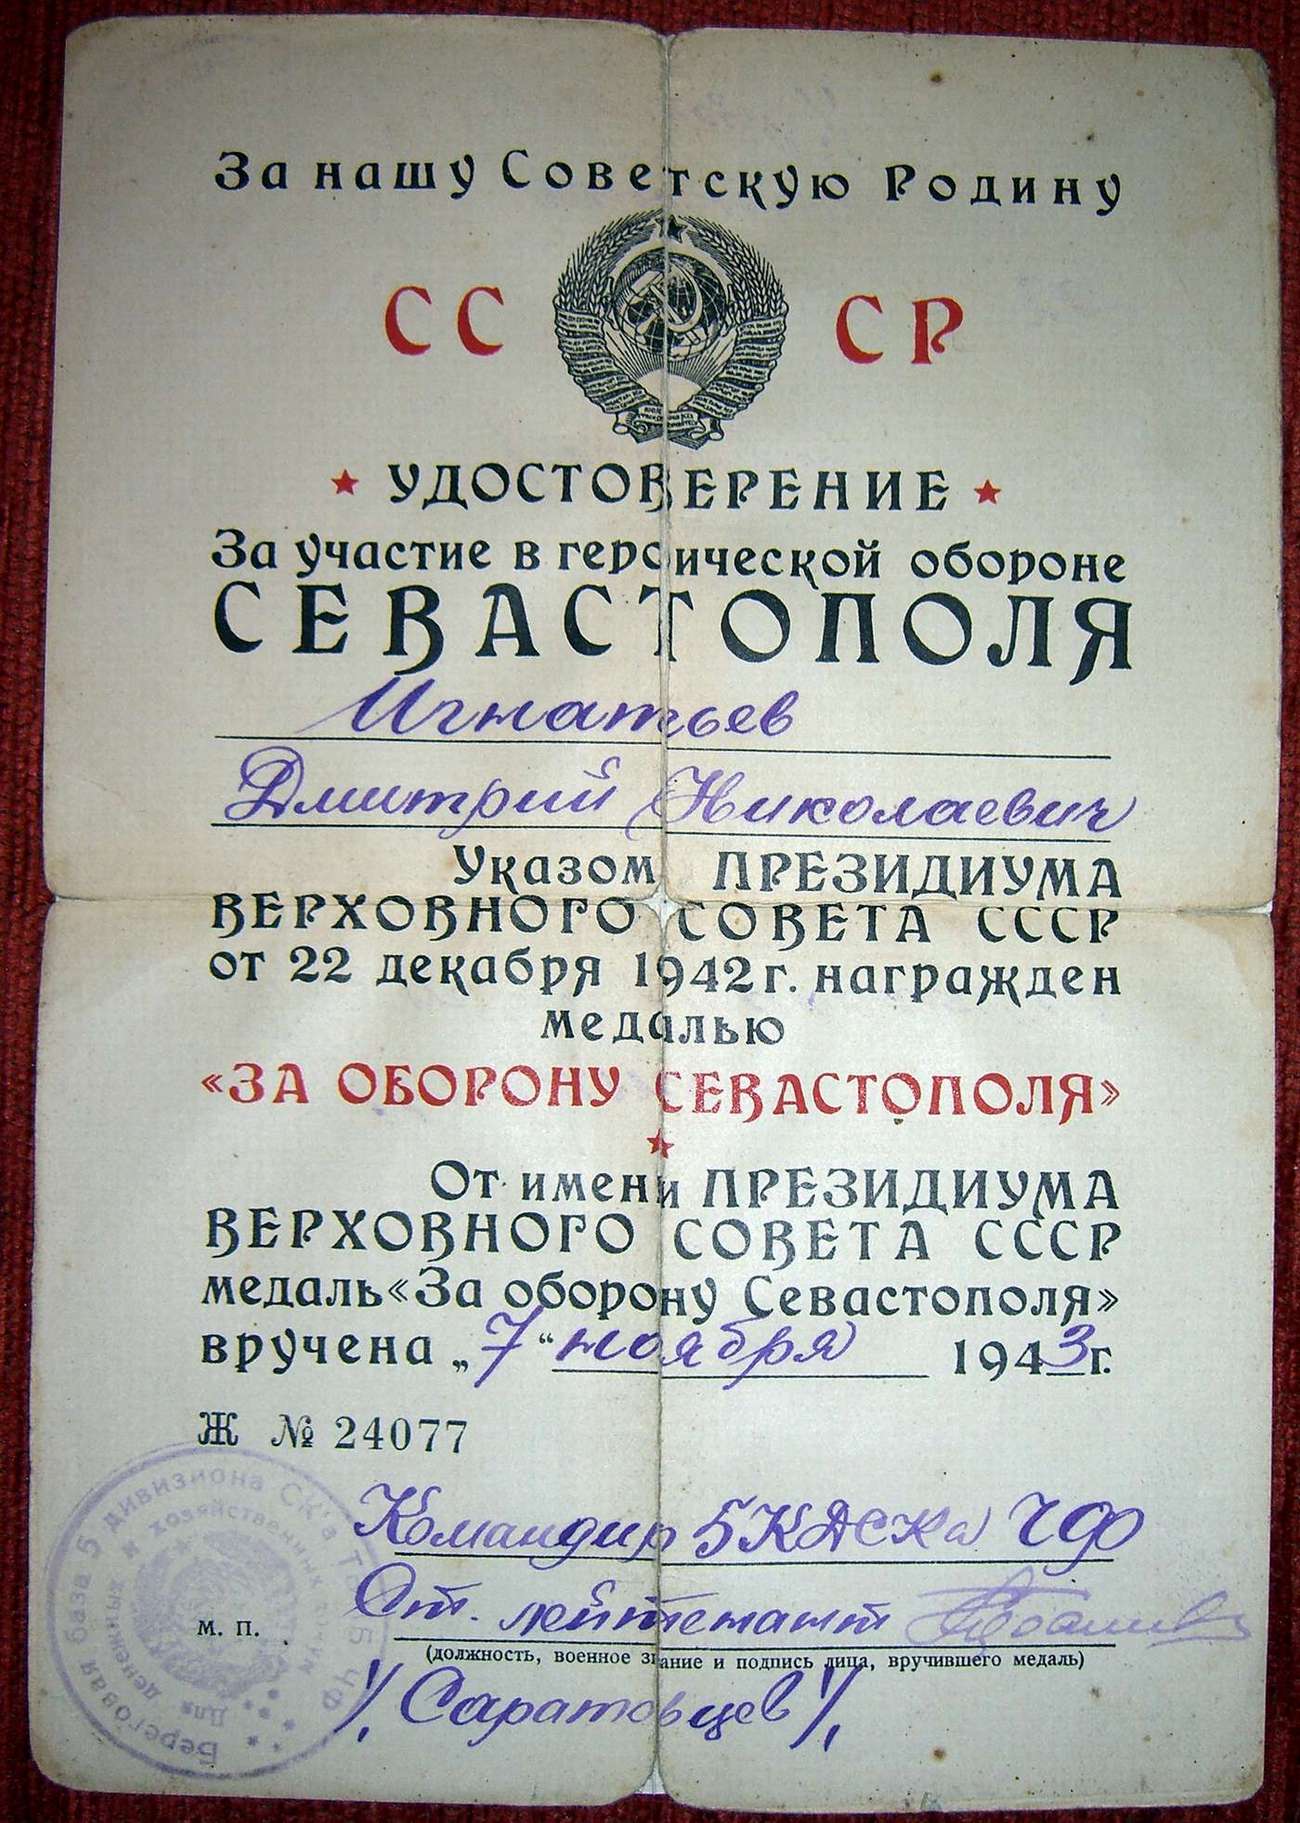 За нашу Советскую Родину
СС СР
УДОСТОВЕРЕНИЕ
За участие в героической обороне
СЕВАСТОПОЛЯ
Игнатьев
Дмитрий Николаевич
Указом ПРЕЗИДИУМА
ВЕРХОВНОГО СОВЕТА СССР
от 22 декабря 1942 г. награжден
медалью
«ЗА ОБОРОНУ СЕВАСТОПОЛЯ»
От имени ПРЕЗИДИУМА
ВЕРХОВНОГО СОВЕТА СССР
медаль «За оборону Севастополя»
вручена „7“ ноября 1943 г.
Ж № 24077
Командир 5 КДСКа ЧФ
Ст. лейтенант
м. п.
(должность, военное звание и подпись лица, вручившего медаль)
/Саратовцев/
Береговая база 5 дивизиона СК'а ЧФ
Для денежных и хозяйственных